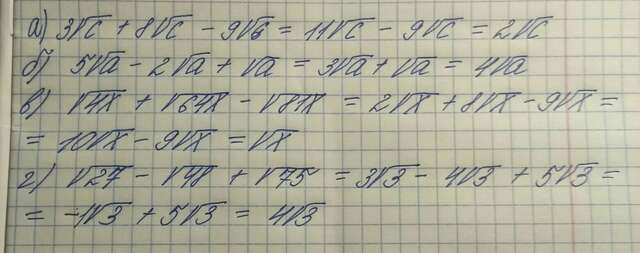 а) 3√c + 8√c - 9√6 = 11√c - 9√c = 2√c
б) 5√a - 2√a + √a = 3√a + √a = 4√a
в) √4x + √64x - √81x = 2√x + 8√x - 9√x =
= 10√x - 9√x = √x
г) √27 - √48 + √75 = 3√3 - 4√3 + 5√3 =
= -1√3 + 5√3 = 4√3